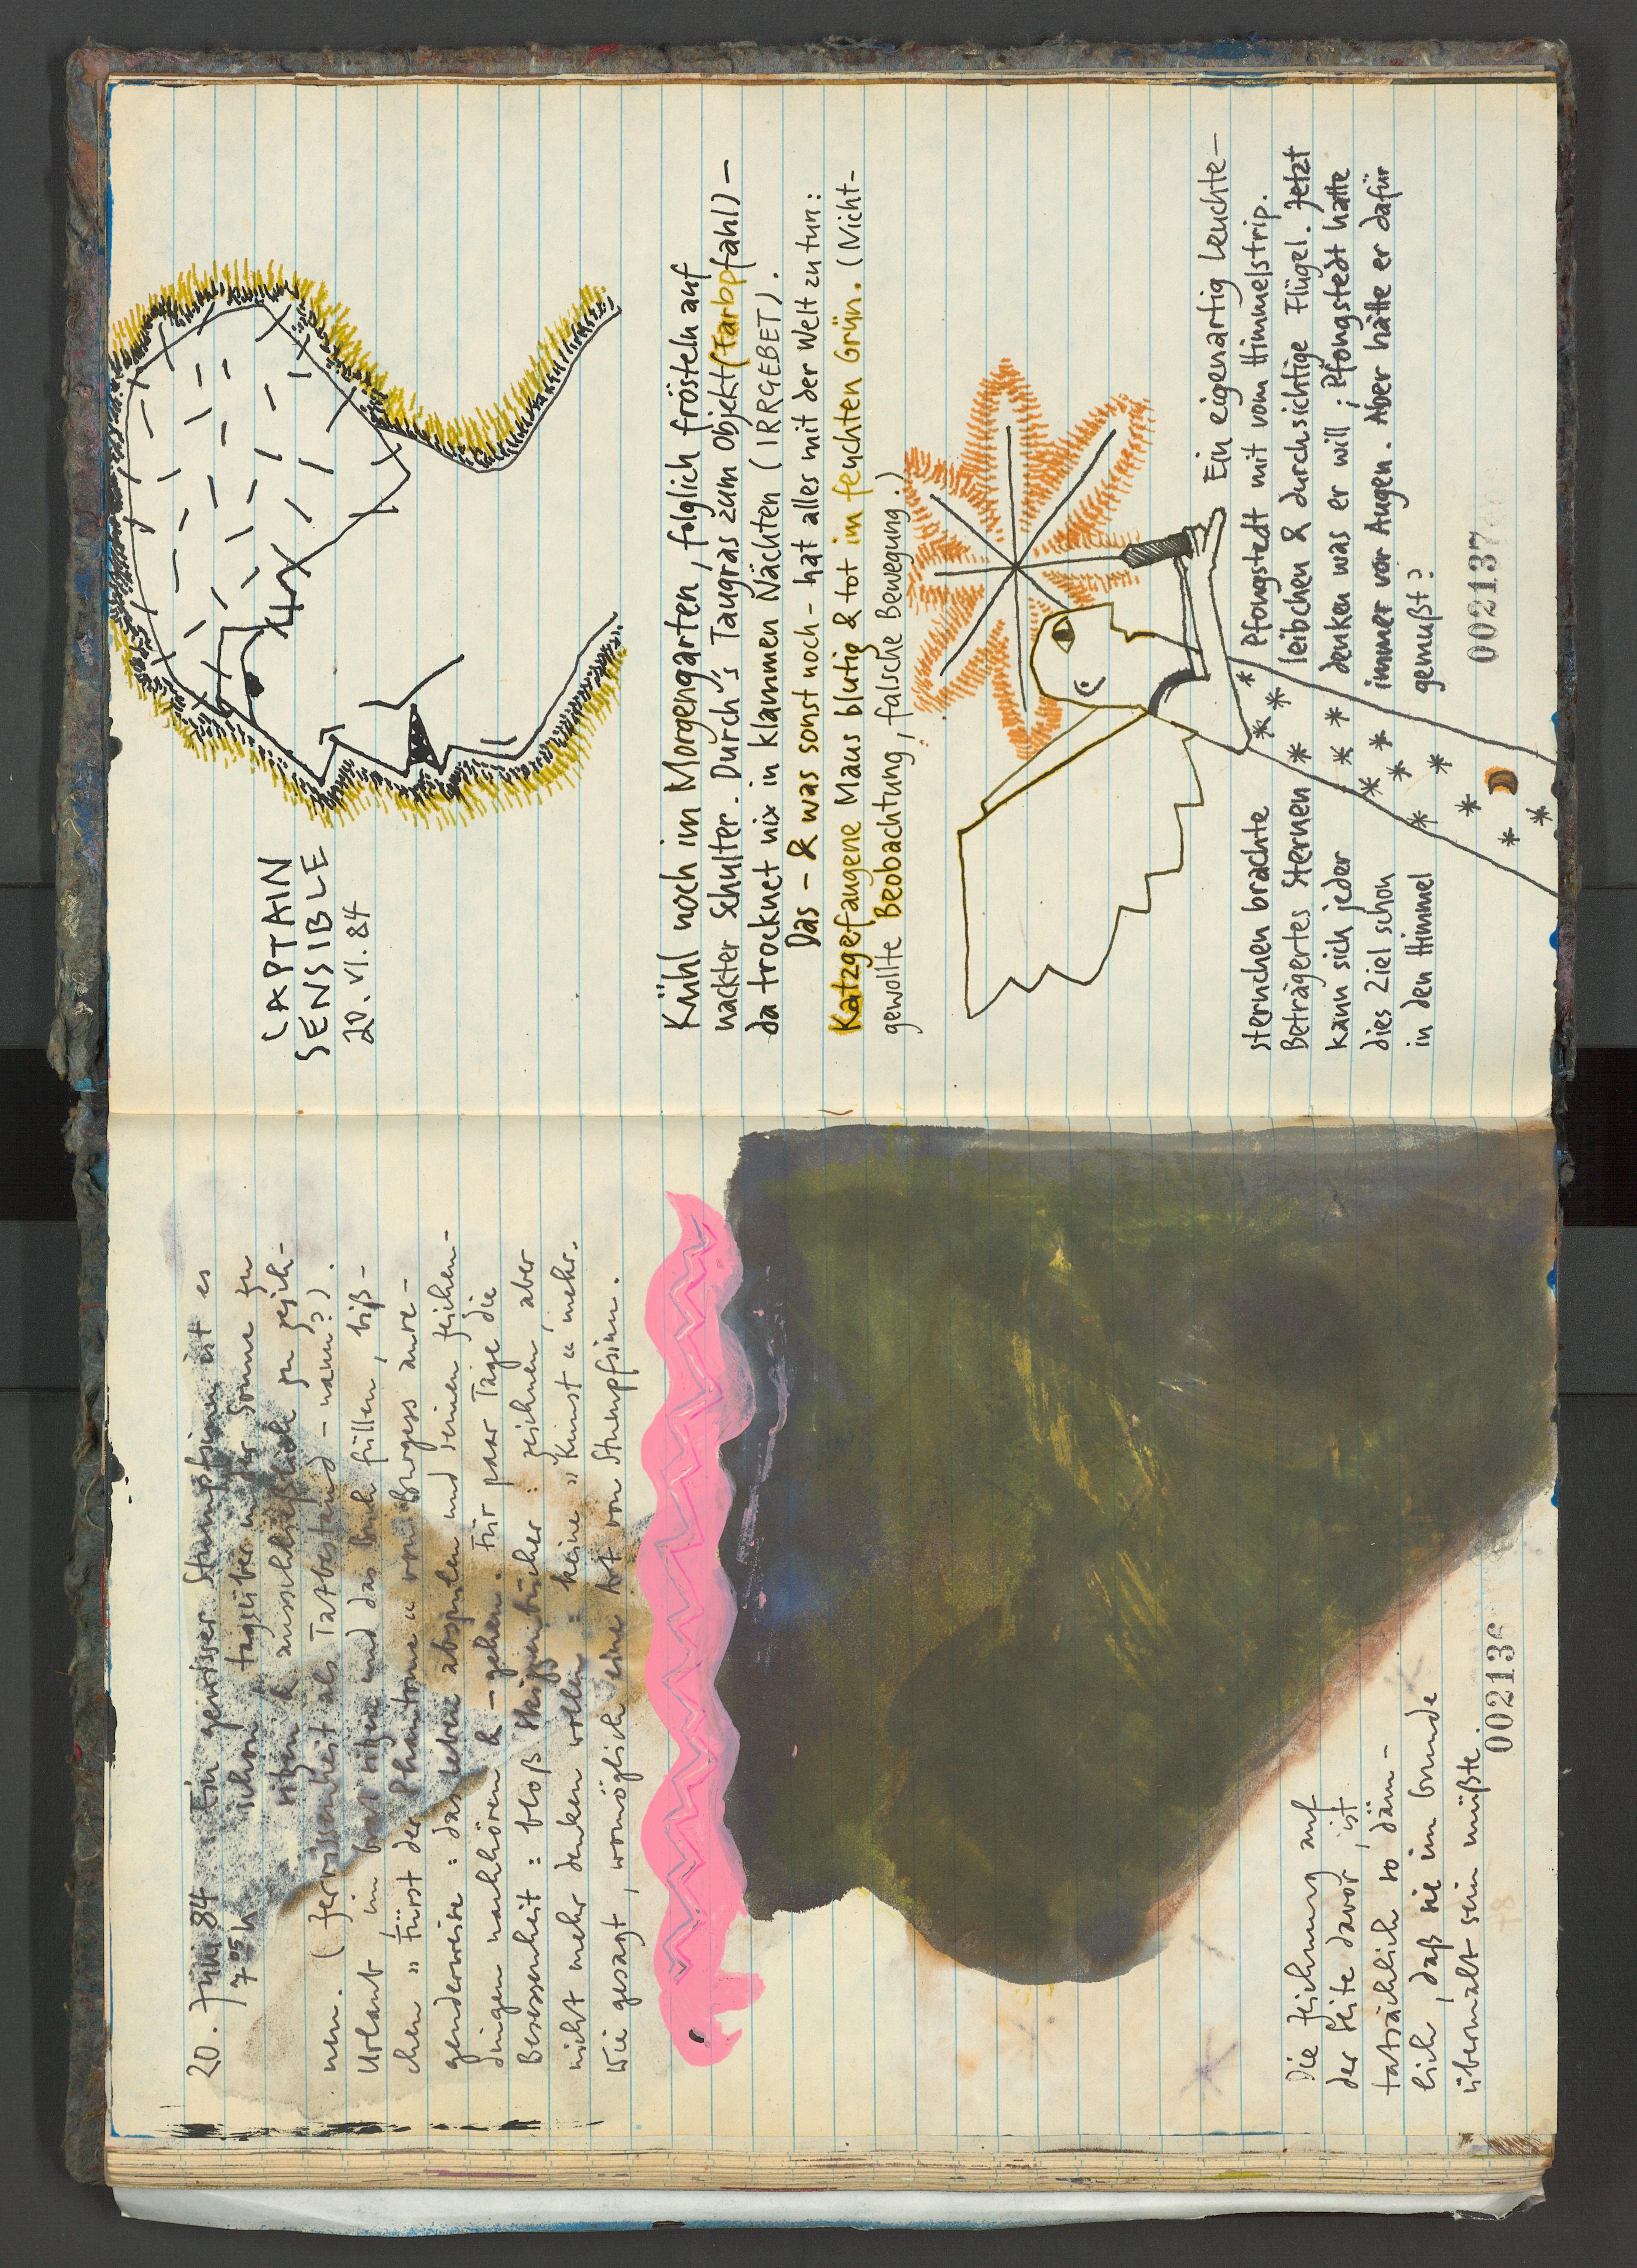 20. Juni 84 Ein gewisser Stumpfsinn ist es
7 05 h schon tagsüber in der Sonne zu
sitzen & ausschließlich zu zeich-
nen. (Zerrissenheit als Tatbestand – wann?).
Urlaub, im Gras sitzen und das Buch füllen, biß-
chen „Fürst der Phantome" von Burgess anre-
genderweise: das Leben abspulen und seinen Zeichen-
dingen nachhören & -gehen. Für paar Tage die
Besessenheit: bloß Skizzenbücher: zeichnen, aber
nicht mehr denken wollen = keine „Kunst" mehr.
Wie gesagt, womöglich eine Art von Stumpfsinn.
Die Zeichnung auf
der Seite davor, ist
tatsächlich so däm-
lich, daß sie im Grunde
übermalt sein müßte.
002136
CAPTAIN
SENSIBLE
20. VI. 84
Kühl noch im Morgengarten, folglich frösteln auf
nackter Schulter. Durch's Taugras zum Objekt (Farbpfahl) –
da trocknet nix in klammen Nächten (IRRGEBET).
Das – & was sonst noch – hat alles mit der Welt zu tun:
Katzgefangene Maus blutig & tot im feuchten Grün. (Nicht-
gewollte Beobachtung, falsche Bewegung.)
Ein eigenartig Leuchte-
sternchen brachte Pfongstedt mit vom Himmelstrip.
Beträgertes Sternenleibchen & durchsichtige Flügel. Jetzt
kann sich jeder denken was er will; Pfongstedt hatte
dies Ziel schon immer vor Augen. Aber hätte er dafür
in den Himmel gemußt?
002137